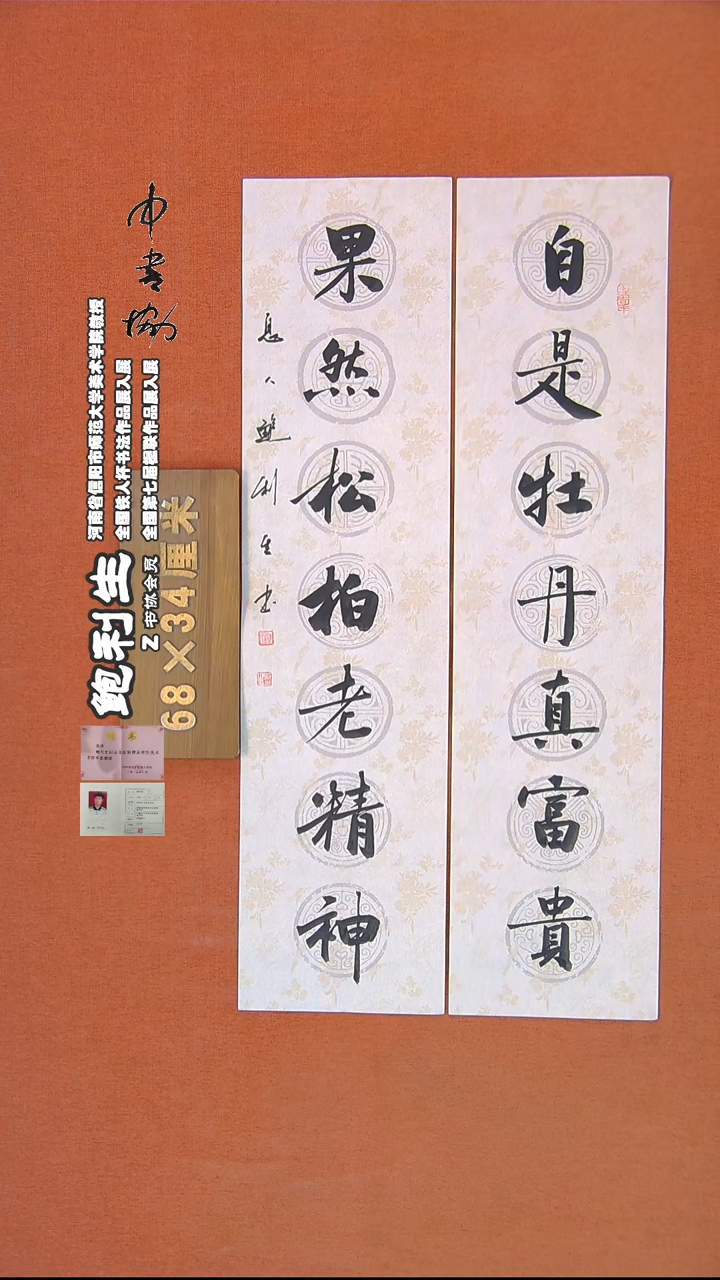 自是牡丹真富貴
果然松柏老精神
息人鮑利生书
中书协
河南省信阳市师范大学美术学院教授
全国铁人杯书法作品展入展
全国第七届楹联作品展入展
鲍利生
Z书协会员
68×34厘米